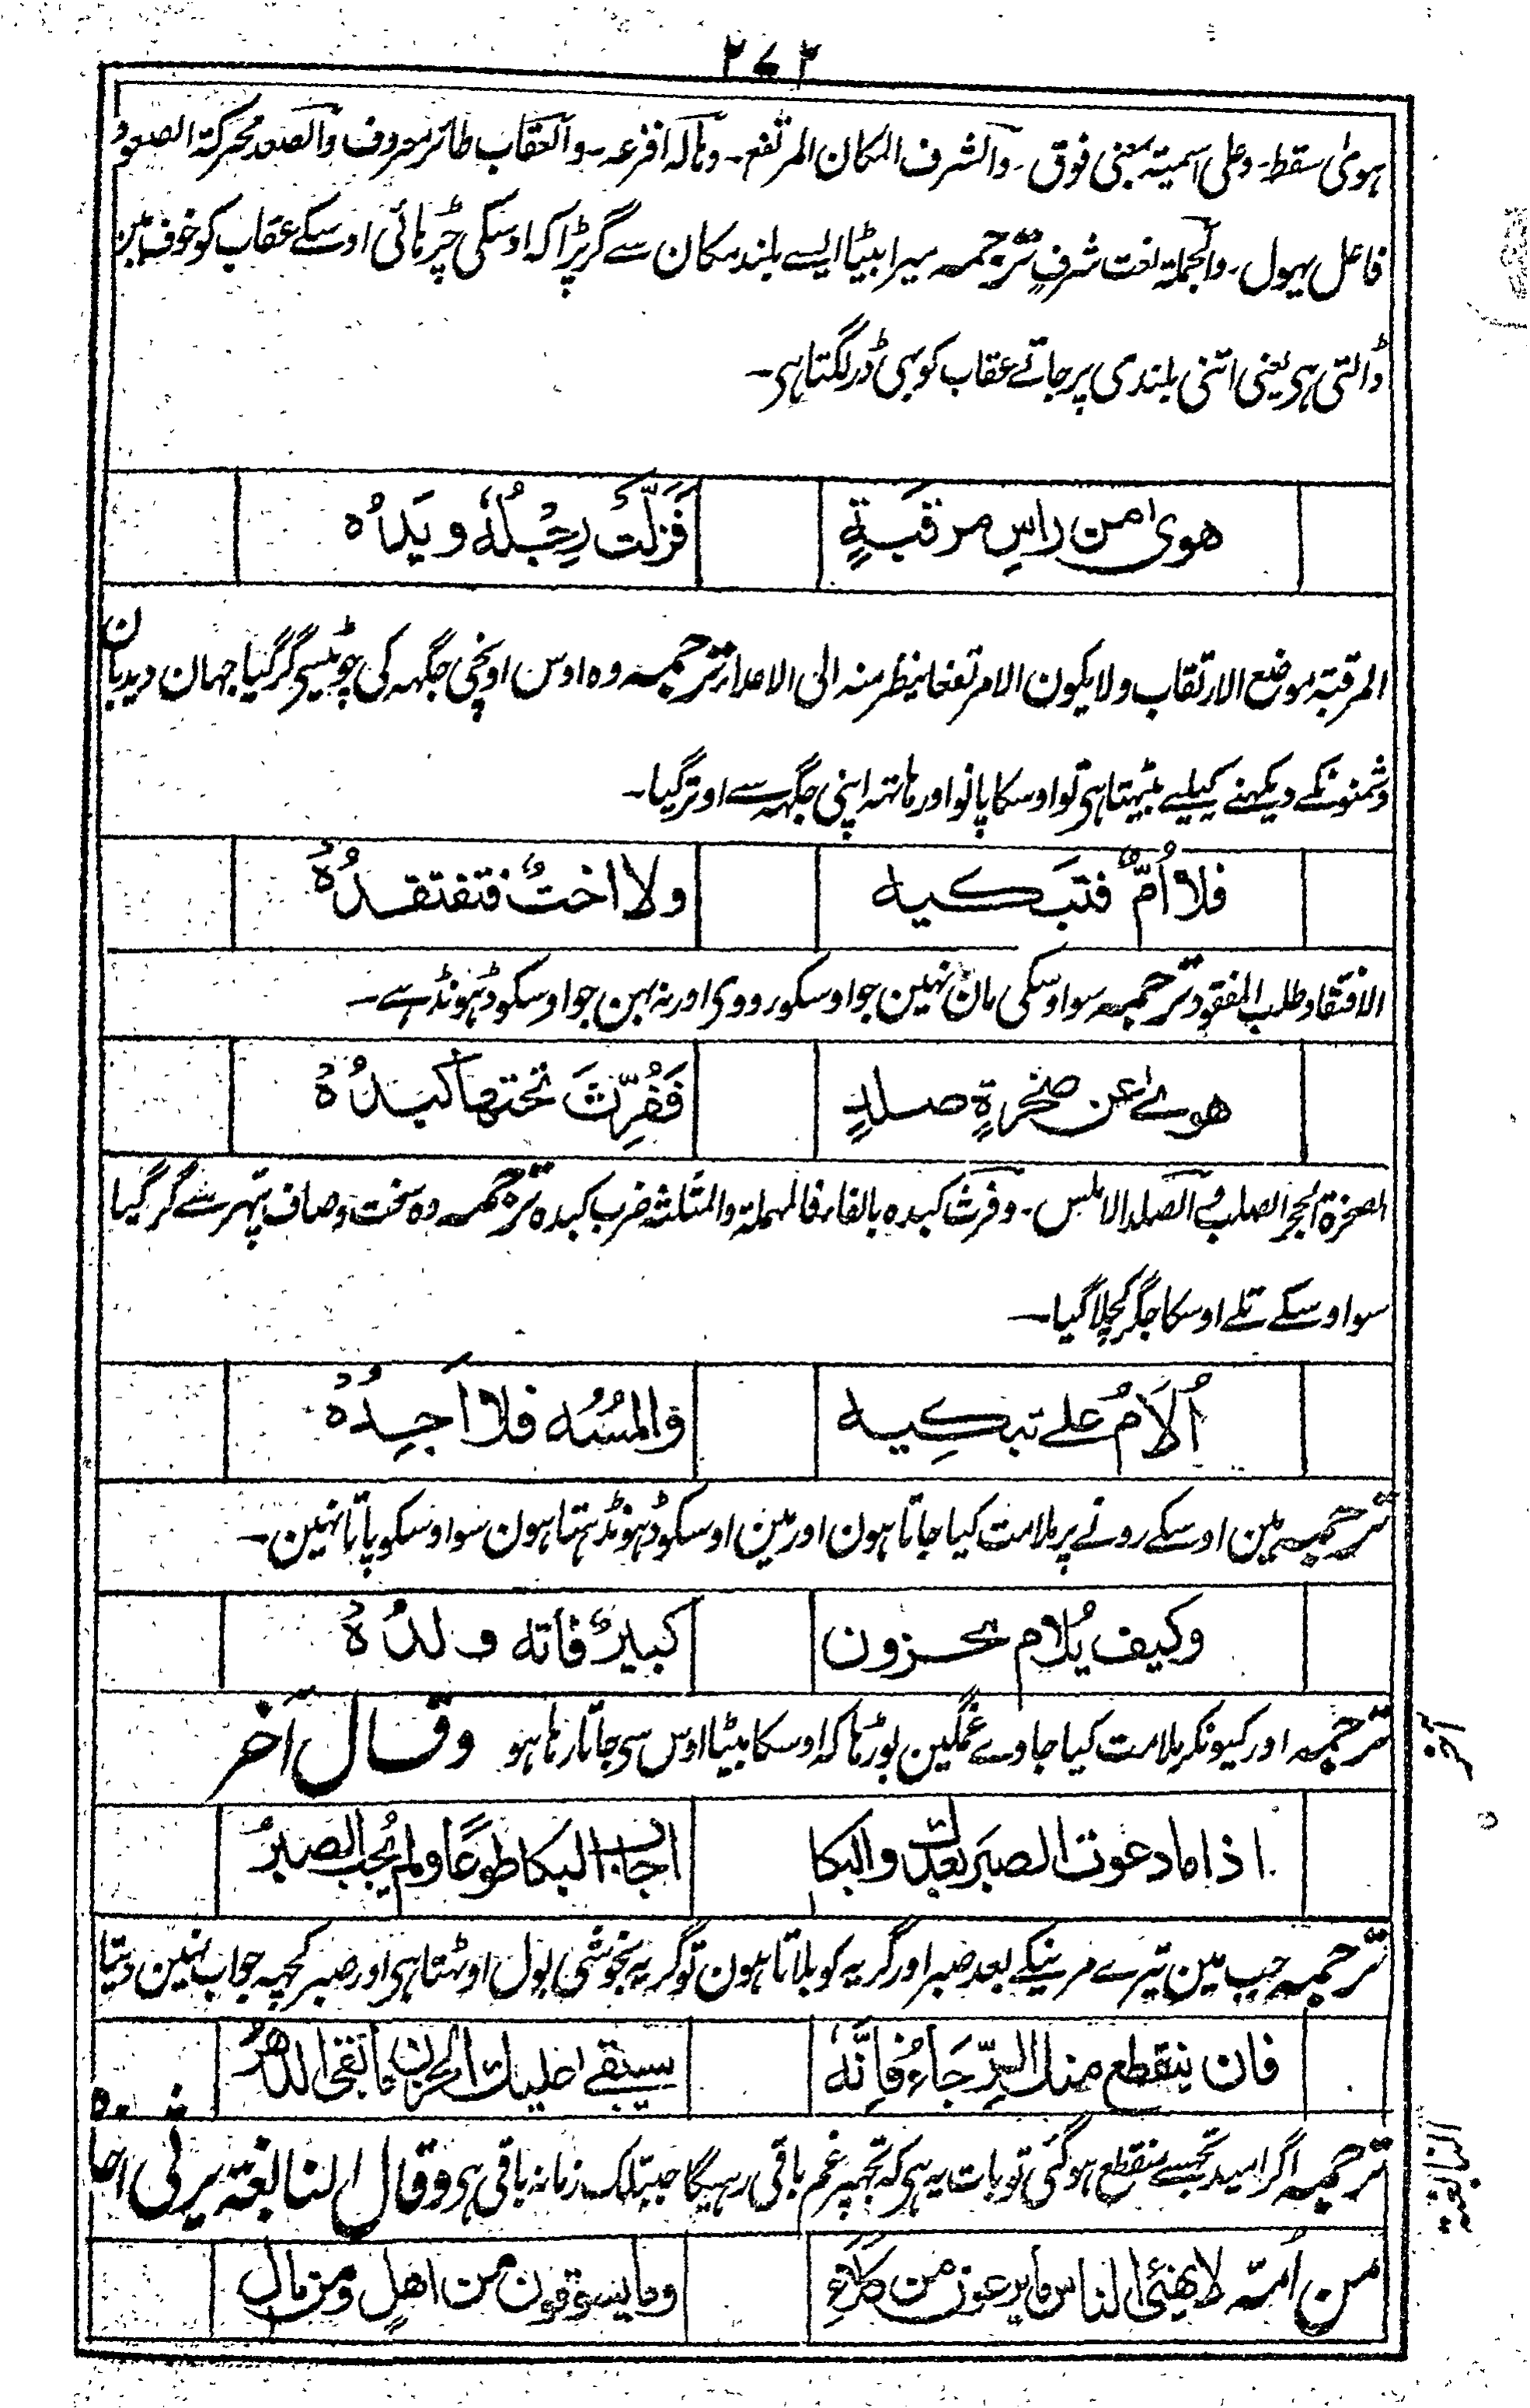 ۲۷۲
ہوی سقط۔ وعلی اسمیتہ بمعنی فوق۔ والشرف المکان المرتفع۔ وہالہ افزعہ۔ والعقاب طائر معروف والصعد محرکۃ الصعود
فاعل یہول۔ والجملۃ نعت شرفٍ ترجمہ میرا بیٹا ایسے بلند مکان سے گر پڑا کہ اوسکی چڑہائی اوسکے عقاب کو خوف مین
ڈالتی ہی یعنی اتنی بلندی پر جاتے عقاب کو بہی ڈر لگتا ہی۔
هوىٰ من راسِ مرقبَةٍ فَزلَّتْ رِجْلُهٗ ويَدُه
المرقبۃ موضع الارتقاب ولا یکون الا مرتفعا ینظر منہ الی الاعداء ترجمہ وہ اوس اونچی جگہہ کی چوٹیسی گر گیا جہان دیدبان
دشمنونکے دیکہنے کیلیے بیٹہتا ہی تو اوسکا پانو اور ہاتہہ اپنی جگہہ سے اوتر گیا۔
فلا اُمٌّ فتبَكيه ولا اختٌ فتفتقدُهٗ
الافتقاد طلب المفقود ترجمہ سو اوسکی مان نہین جو اوسکو رووی اور نہ بہن جو اوسکو ڈہونڈہے۔
هوىٰ عن صخرةٍ صلدٍ فَفُرِّثَ تحتها كبدُهٗ
الصخرۃ الحجر الصلب والصلد الاملس۔ وفرث کبدہ بالفاء فالمہملۃ والمثلثہ ضرب کبدہ ترجمہ وہ سخت وصاف پتہر سے گر گیا
سو اوسکے تلے اوسکا جگر کچلا گیا۔
اُلَامُ علے تبكيه والمسُه فلا اَجِدُهٗ
ترجمہ مین اوسکے رونے پر ملامت کیا جاتا ہون اور مین اوسکو ڈہونڈہتا ہون سو اوسکو پاتا نہین۔
وكيف يُلام محزون كبيرٌ فاته ولدُهٗ
ترجمہ اور کیونکر ملامت کیا جاوے غمگین بوڑہا کہ اوسکا بیٹا اوس سی جاتا رہا ہو وقال آخر
آخر
اذا ما دعوت الصبرَ بعدك والبكا اجاب البكا طوعًا ولم يُجب الصبرُ
ترجمہ جب مین تیرے مرنیکے بعد صبر اور گریہ کو بلاتا ہون تو گریہ بخوشی بول اوٹہتا ہی اور صبر کچہہ جواب نہین دیتا
فان ينقطع منك الرِّجاءُ فاِنَّهٗ سيبقے عليك الحزن ما بقى الدهرُ
ترجمہ اگر امید تجہسے منقطع ہو گئی تو بات یہ ہی کہ تجہپر غم باقی رہیگا جبتلک زمانہ باقی ہی وقال النابغۃ یرثی اخاہ
النابغۃ
من اُمّه لا يهنئ الناس ما يرعون من كلاءٍ وما يسوقون من اهلٍ ومن مال